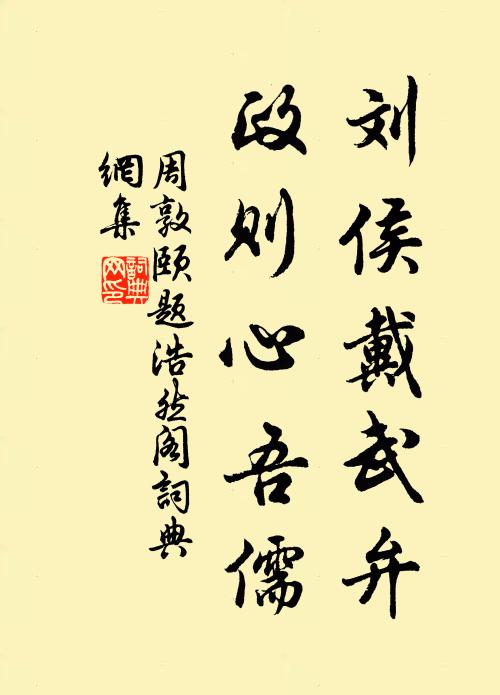 刘侯戴武弁
政则心吾儒
周敦颐题浩然阁詞典
網集
詞典
网印